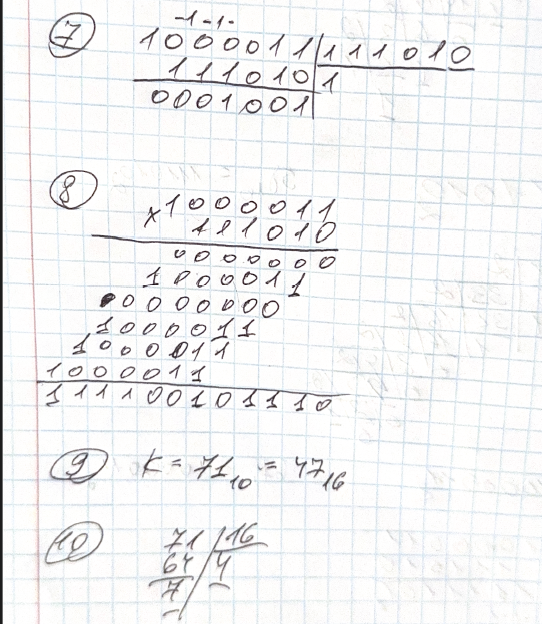 7
-1 -1-
1000011 111010
111010 1
0001001
8
×1000011
111010
0000000
1000011
00000000
1000011
1000011
1000011
111100101110
9 K = 71₁₀ = 47₁₆
10
71 16
64 4
7